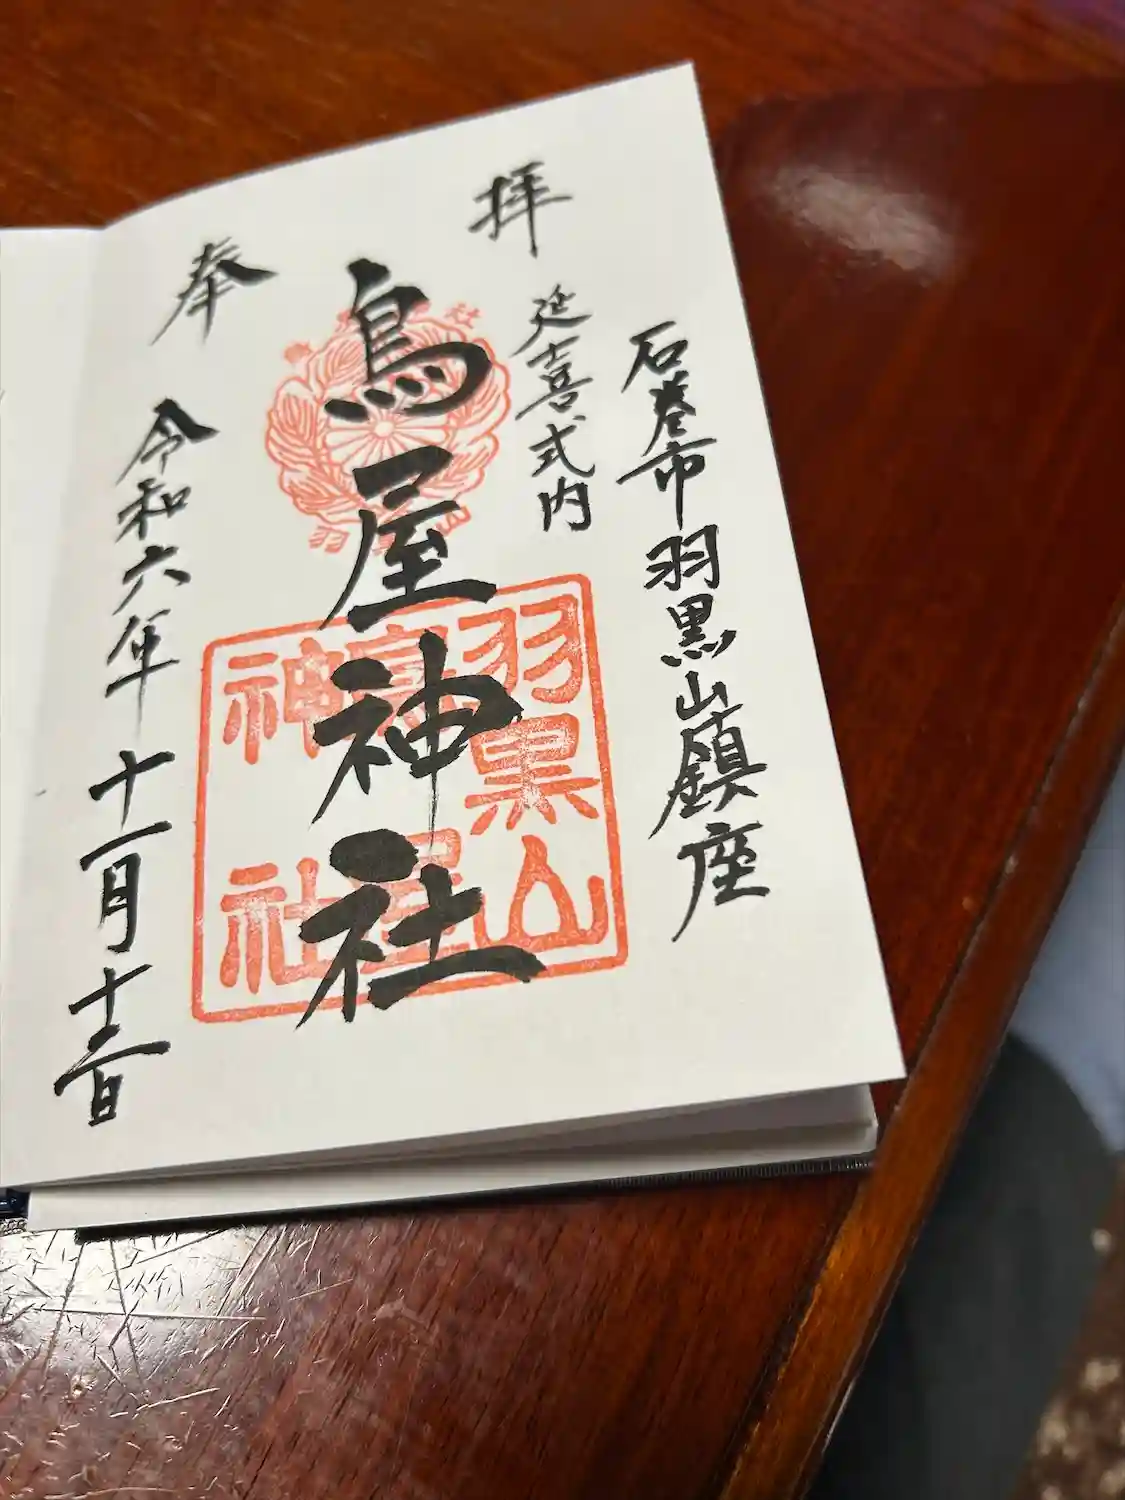 石巻市羽黒山鎮座
拝
延喜式内
鳥屋神社
奉
令和六年十一月十二日
羽黒山
鳥屋
神社
社